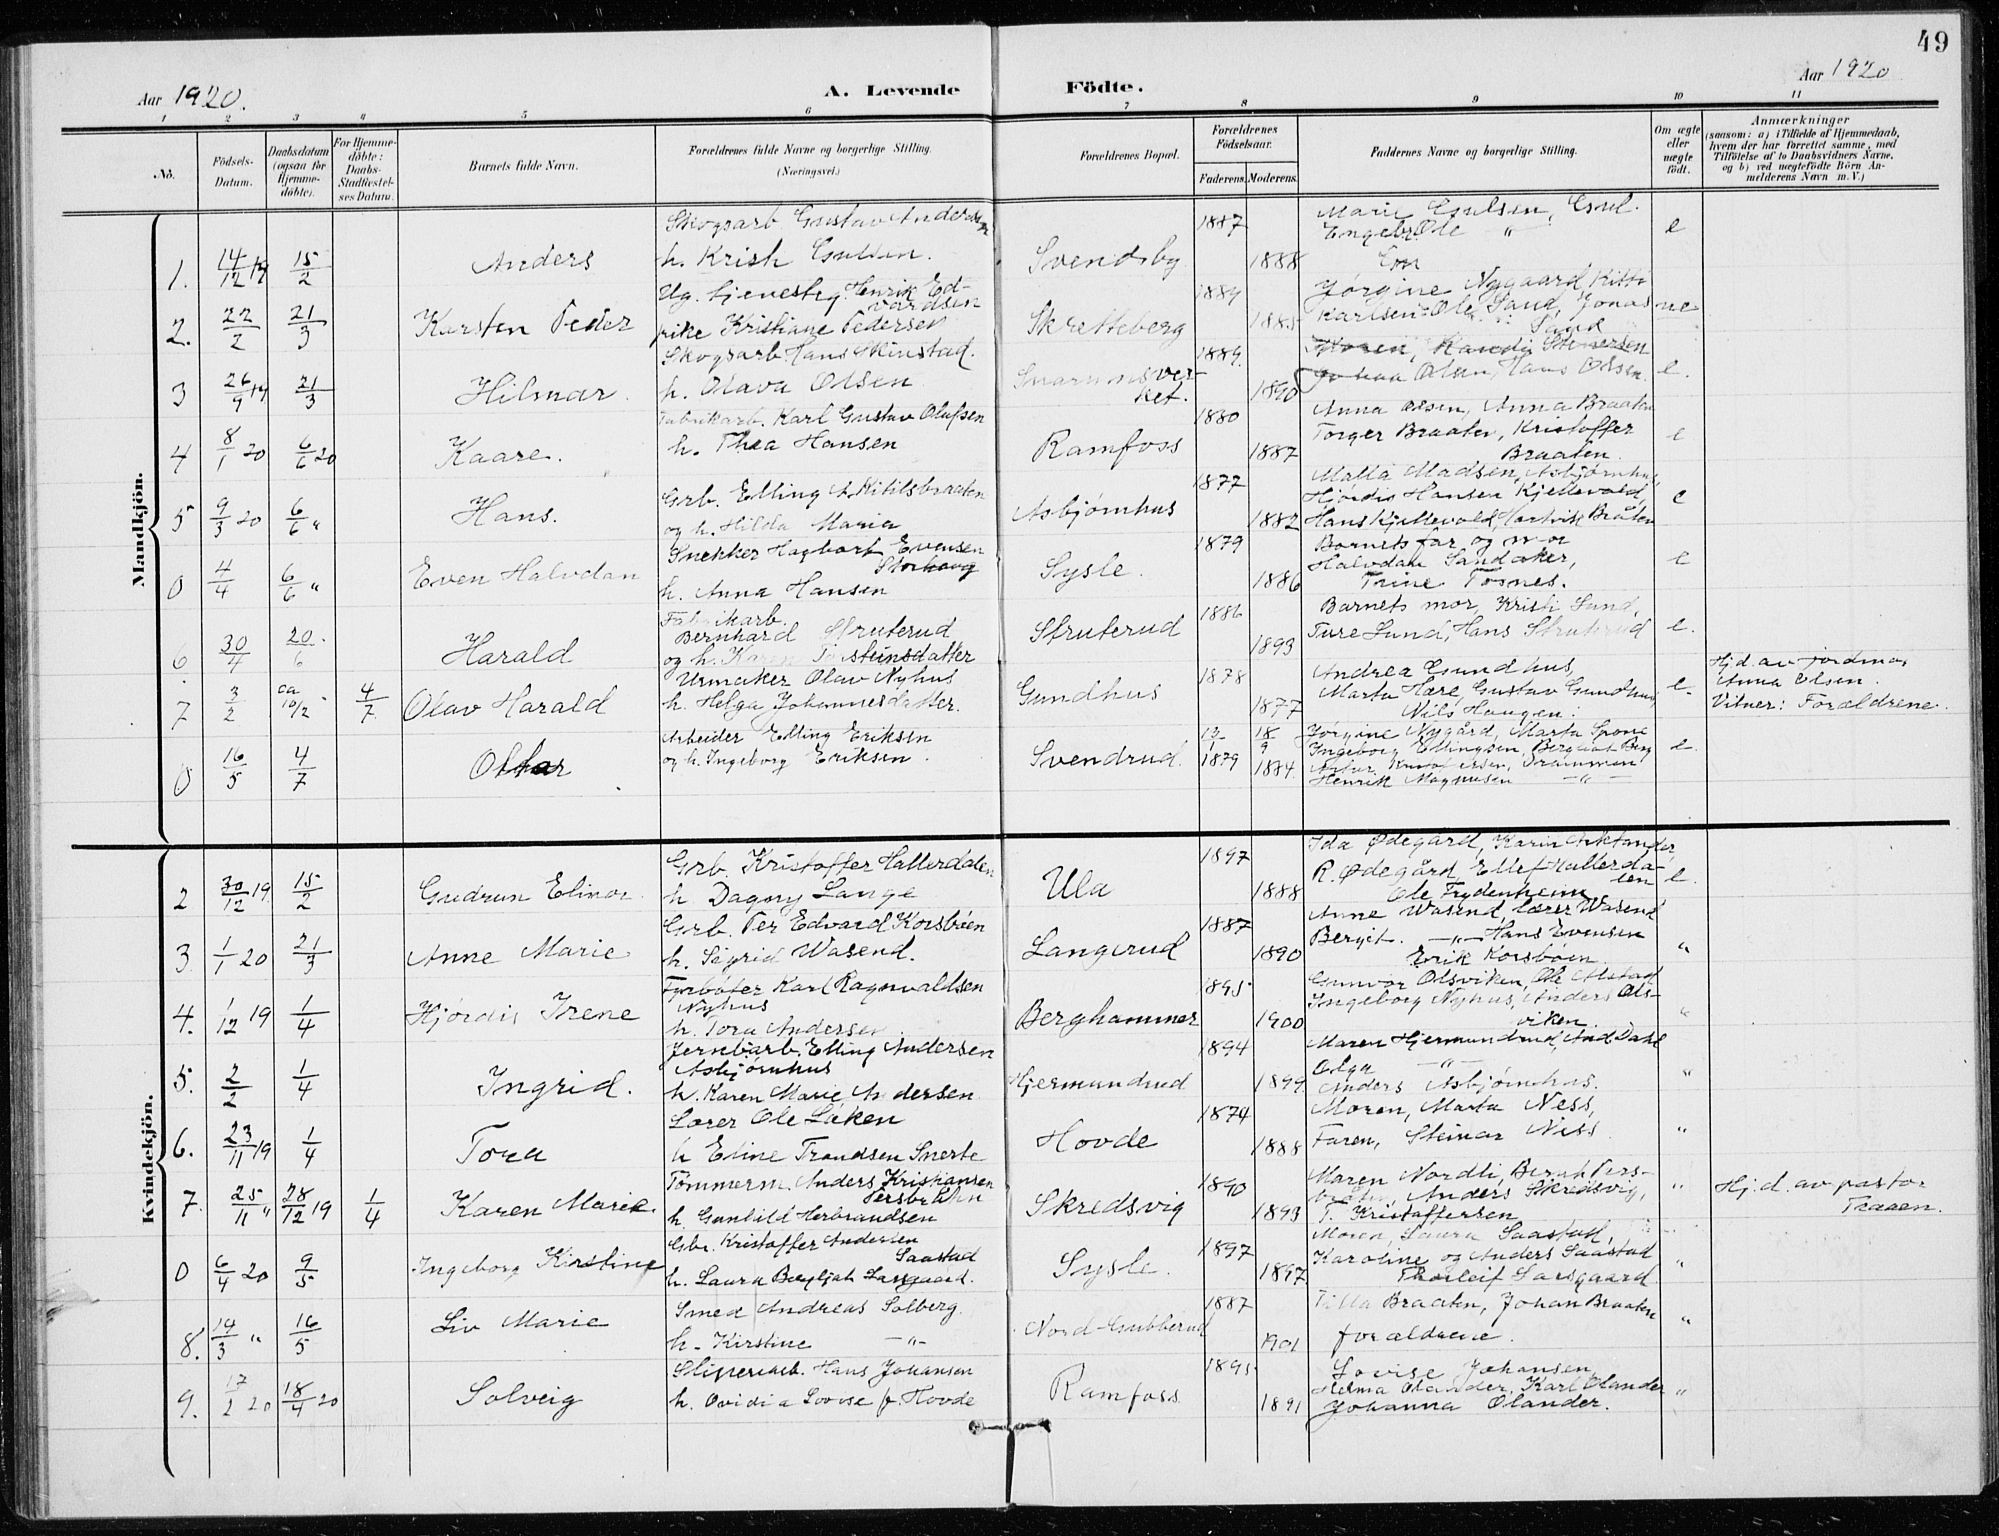 49
Aar 1920.
A. Levende Födte.
Aar 1920
1 2 3 4 5 6 7 8 9 10 11
No.
Födsels-Datum.
Daabsdatum (ogsaa for Hjemme-döbte).
For Hjemme-döbte: Daabs-Stadfæstel-ses Datum.
Barnets fulde Navn.
Forældrenes fulde Navne og borgerlige Stilling.
(Næringsvei.)
Forældrenes Bopæl.
Forældrenes Födselsaar.
Faderens. Moderens.
Faddernes Navne og borgerlige Stilling.
Om ægte eller uægte födt.
Anmærkninger
(saasom: a) i Tilfælde af Hjemmedaab, hvem der har forrettet samme, med Tilföielse af to Daabsvidners Navne, og b) ved uægtefödte Börn An-melderens Navn m. V.)
Mandkjön.
Skogsarb Gustav Andersen 1887 Marie Gulsen,
Engebr. Ole " e
1. 14/12 19 15/2 Anders h. Krist. Gulsen. Svendsby 1888
Ug. tjenesteg. Henrik Ed-vardsen 1889 Jørgine Nygaard,
2. 22/2 21/3 Karsten Peder pike Kristiane Pedersen Skretteberg 1885 Karlsen, Ole Sand, Jonas Sand ue
Skogsarb Hans Skinstad. 1889.
3 26/9 19 21/3 Hilmar. h. Olava Olsen Snarumsver-ket. 1890 Johan Olsen, Hans Olsen. e.
Fabrikarb. Karl Gustav Olufsen 1880 Anna Olsen, Anna Braaten
4 8/1 20 6/6 20 Kaare. h. Thea Hansen Ramfoss 1887 Torger Braaten, Kristoffer Braaten. e
Grb. Elling A. Kitilsbraaten 1877 Malla Madsen, Asbjørnhus,
5 9/3 20 6/6 " Hans. og h. Hilda Maria Asbjørnhus 1882 Hjørdis Hansen Kjellevold, Hans Kjellevold, Hartvik Bråten e
Snekker Hagbart Evensen Storhaug 1879 Barnets far og mor
0 4/4 6/6 " Even Halvdan h. Anna Hansen Sysle. 1886 Halvdan Sandaker, Trine Tosnes. e
Fabrikarb. 1886 Barnets mor, Kristi Sand,
Bernhard Struterud
6. 30/4 20/6 Harald og h. Karen Torsteinsdatter Struterud 1893 Ture Sund, Hans Struterud e.
Urmaker Olav Nyhus 1878 Andrea Gundhus, Hj.d. av jordmor
7 3/2 ca 10/2 4/7 Olav Harald h. Helga Johannesdatter. Gundhus 1877 Marta Hære, Gustav Gundhus, Nils Haugen. e. Anna Olsen. Vitner: Forældrene.
Arbeider Elling Eriksen 13/1 1879 18/9 1884 Jørgine Nygård, Marta Spone
0 16/5 4/7 Ottar og h. Ingeborg Eriksen. Svendrud. Ingeborg Ellingsen, e.
Henrik Magnusen — " —
Kvindekjön.
Grb. Kristoffer Hallerdalen 1897 Ida Ødegård, Karin
2 30/12 19. 15/2 Gudrun Elinor h Dagny Lange Ula 1888 R. Ødegård, Ellef Hallerda-len Ole Frydenheim e.
Grb. Per Edvard Korsbøen 1887 Anne Wasend, lærer Wasend
3. 1/1 20 21/3 Anne Marie h. Sigrid Wasend. Langerud 1890 Bergit. —"— Hans Evensen Erik Korsbøen "
Fyrbøter Karl Ragnvaldsen Nyhus 1895 Gunvor Olsviken, Ole Alstad
4. 1/12 19 1/4 Hjørdis Irene h. Tora Andersen. Berghammer 1900 Ingeborg Nyhus, Anders Ols-viken "
Jernbarb. Elling Andersen Asbjørnhus 1894 Maren Hjermundrud, And. Dahl
5. 2/2 1/4 Ingrid. h. Karen Marie Andersen. Hjermundrud 1899 Olga —"— Anders Asbjørnhus. "
Lærer Ole Laken 1874 Moren, Marta Ness,
6. 23/11 19 1/4 Tora h Eline Trondsen Snerte Hovde 1888 Faren, Steinar Ness "
Tømmerm. Anders Kristiansen Persbråtn 1890 Maren Nordli, Bernt Pers-
7. 25/11 " 28/12 19 1/4 Karen Marie. h. Gunhild Herbrandsen Skredsvig 1893 bråtn, Anders Skredsvig, T. Kristoffersen " Hj.d. av pastor Traaen.
Gbr. Kristoffer Andersen Saastad 1897 Moren, Laura Saastad,
0 6/4 20 9/5 Ingeborg Kirstine h. Laura Bergljot Larsgaard. Sysle. 1897 Karoline og Anders Saastad Thorleif Larsgaard "
Smed Andreas Solberg. 1887 Tilla Braaten, Johan Braaten
8. 14/3 " 16/5 Liv Marie h. Kirstine —"— Nord-Gubberud 1901 forældrene. "
Sliperiarb. Hans Johansen 1895 Lovise Johansen
9. 17/2 20 18/4 20 Solveig h. Ovidia Lovise f. Hovde Ramfoss 1891 Helma Olander, Karl Olander Johanna Olander. "